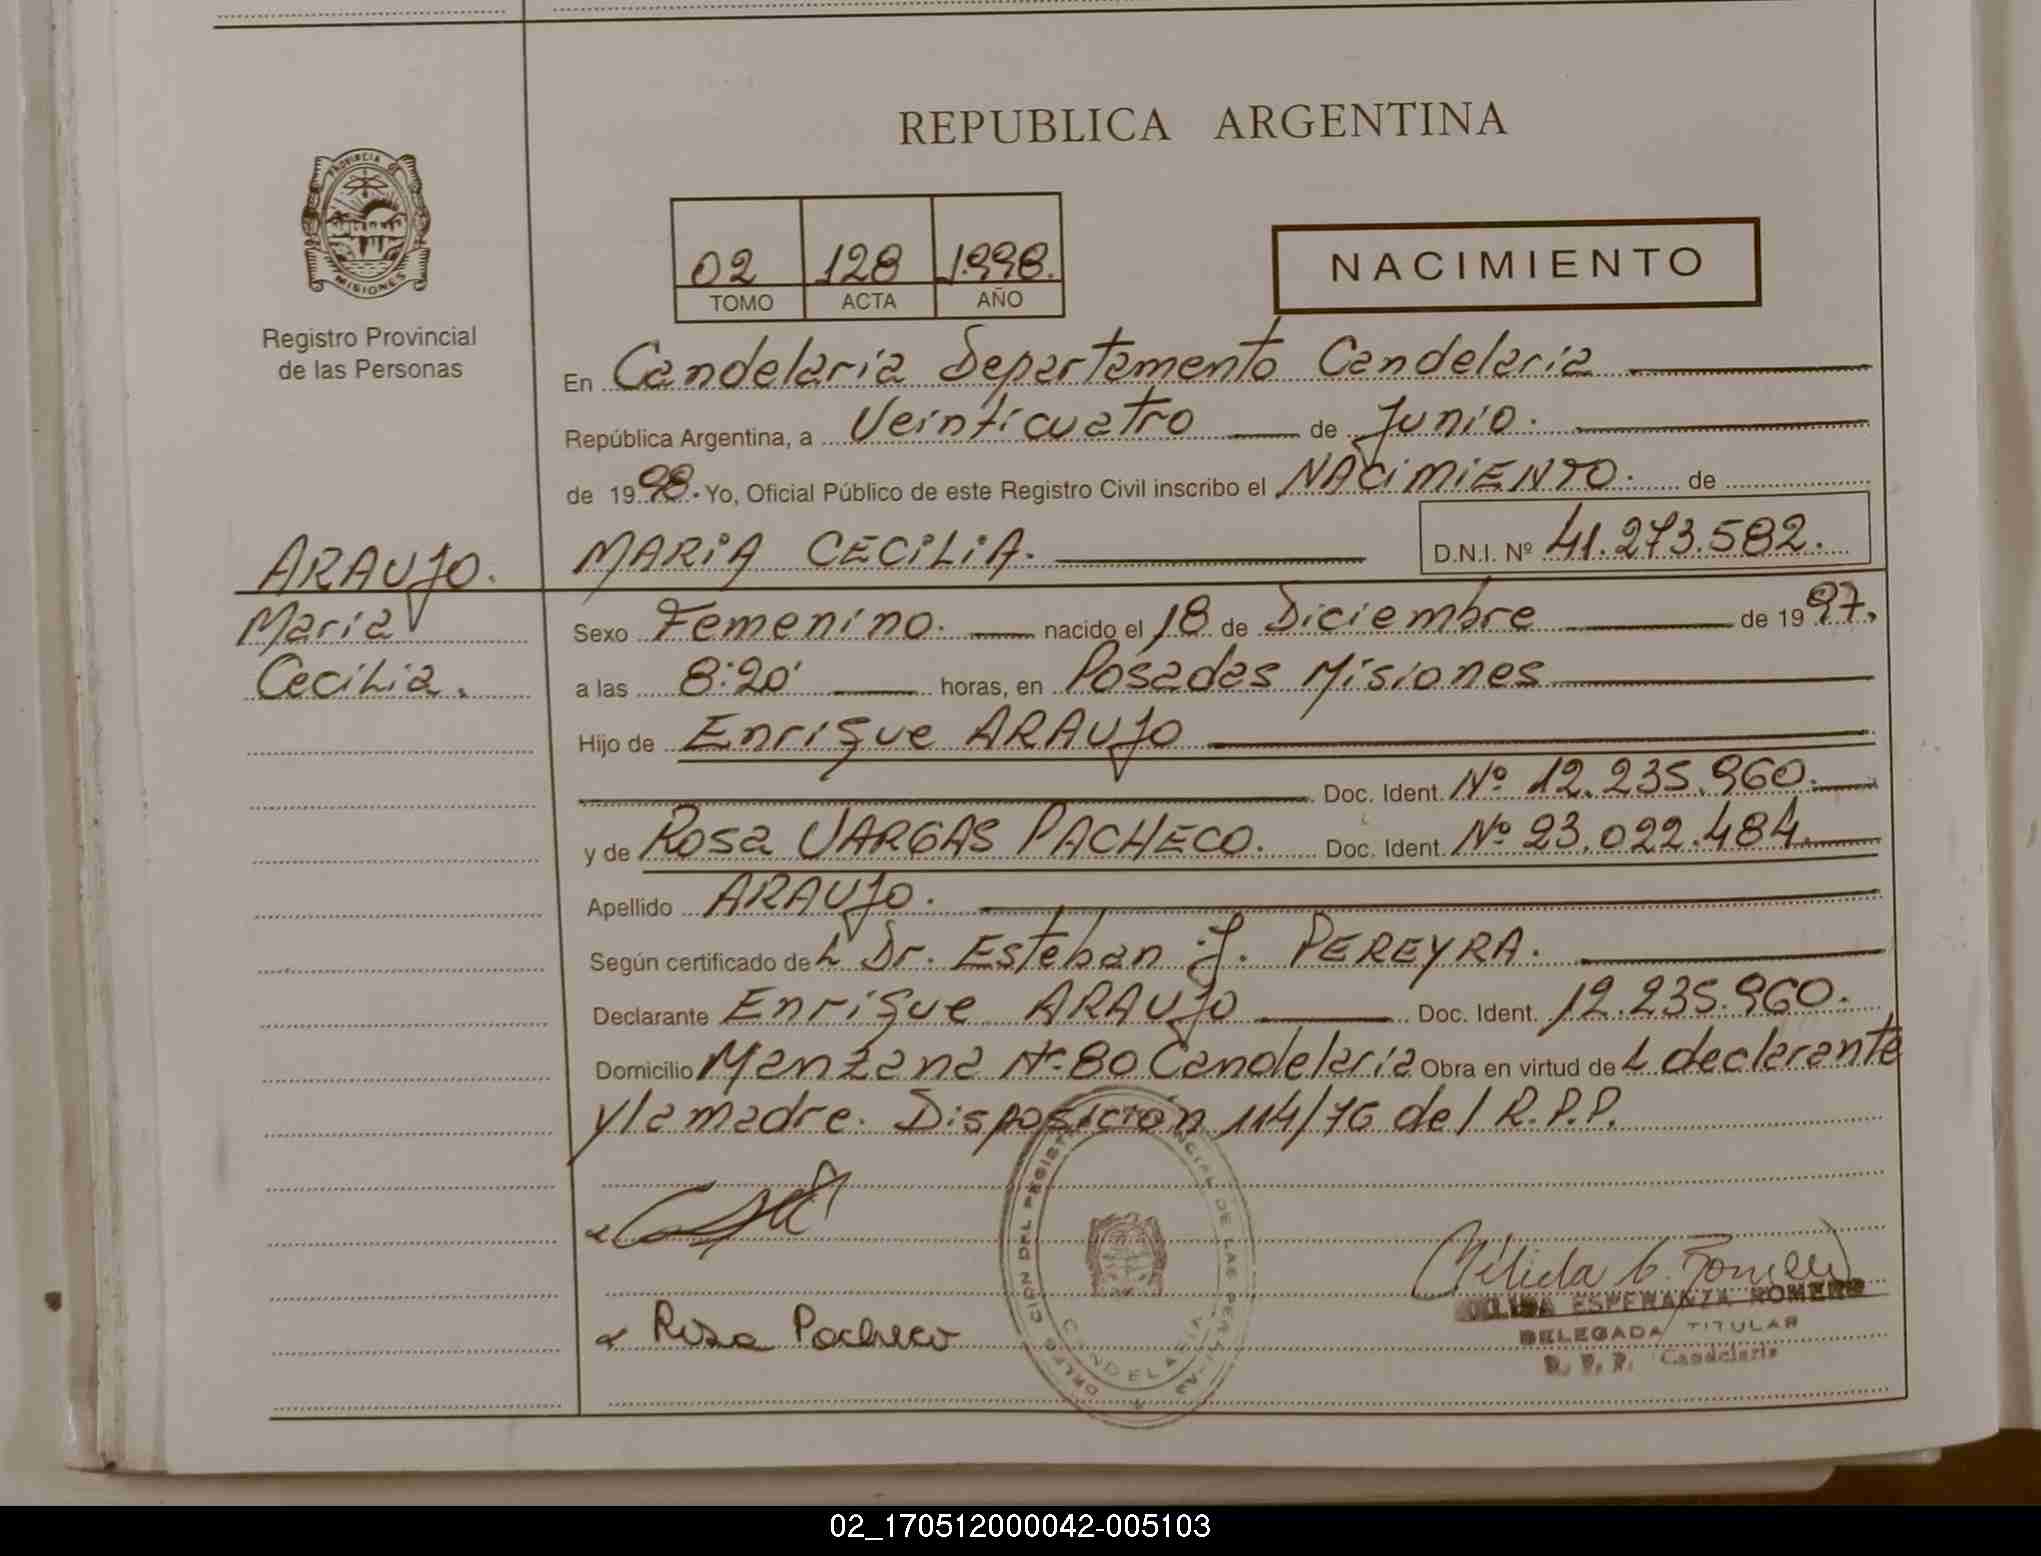 REPUBLICA ARGENTINA
PROVINCIA DE
MISIONES
Registro Provincial
de las Personas
02 128 1.998.
TOMO ACTA AÑO
NACIMIENTO
En Candelaria Departamento Candelaria
República Argentina, a Veinticuatro de Junio.
de 1998. Yo, Oficial Público de este Registro Civil inscribo el NACIMIENTO. de
ARAUJO. MARIA CECILIA. D.N.I. Nº 41.273.582.
Maria
Cecilia.
Sexo Femenino. nacido el 18 de Diciembre de 1997.
a las 8:20' horas, en Posadas Misiones
Hijo de Enrique ARAUJO
Doc. Ident. Nº 12.235.960.
y de Rosa VARGAS PACHECO. Doc. Ident. Nº 23.022.484.
Apellido ARAUJO.
Según certificado del Dr. Esteban J. PEREYRA.
Declarante Enrique ARAUJO Doc. Ident. 12.235.960.
Domicilio Manzana Nº 80 Candelaria Obra en virtud del declarante
y la madre. Disposición 114/76 del R.P.P.
Rosa Pacheco
ESPERANZA ROMERO
DELEGADA TITULAR
R. P. P. Candelaria
CANDELARIA
02_170512000042-005103